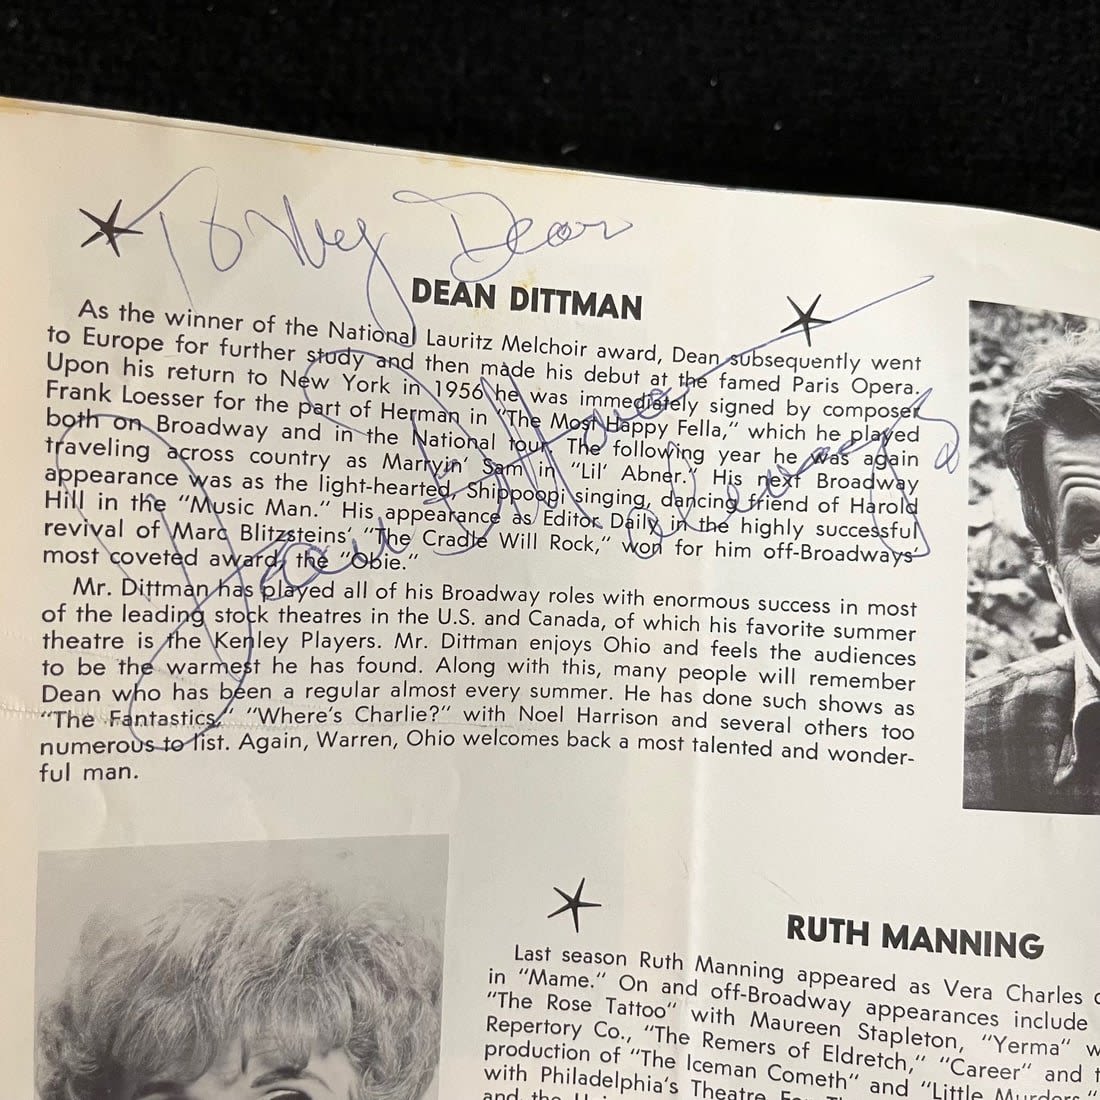 To My Dear
DEAN DITTMAN
As the winner of the National Lauritz Melchoir award, Dean subsequently went
to Europe for further study and then made his debut at the famed Paris Opera.
Upon his return to New York in 1956 he was immediately signed by composer
Frank Loesser for the part of Herman in "The Most Happy Fella," which he played
both on Broadway and in the National tour. The following year he was again
traveling across country as Marryin' Sam in "Lil' Abner." His next Broadway
appearance was as the light-hearted, Shippoopi singing, dancing friend of Harold
Hill in the "Music Man." His appearance as Editor Daily, in the highly successful
revival of Marc Blitzsteins' "The Cradle Will Rock," won for him off-Broadways'
most coveted award, the "Obie."
Mr. Dittman has played all of his Broadway roles with enormous success in most
of the leading stock theatres in the U.S. and Canada, of which his favorite summer
theatre is the Kenley Players. Mr. Dittman enjoys Ohio and feels the audiences
to be the warmest he has found. Along with this, many people will remember
Dean who has been a regular almost every summer. He has done such shows as
"The Fantastics," "Where's Charlie?" with Noel Harrison and several others too
numerous to list. Again, Warren, Ohio welcomes back a most talented and wonder-
ful man.
Dean Dittman
always
RUTH MANNING
Last season Ruth Manning appeared as Vera Charles
in "Mame." On and off-Broadway appearances include
"The Rose Tattoo" with Maureen Stapleton, "Yerma"
Repertory Co., "The Remers of Eldretch," "Career" and
production of "The Iceman Cometh" and "Little Murders"
with Philadelphia's Theatre
and the